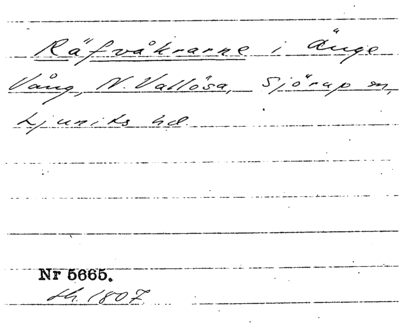 Räfvåkrarne i Änge
Vång, N. Vallösa, Sjörup sn,
Ljunits hd.
Nr 5665.
sk. 1807.